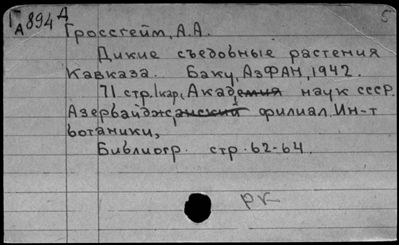 Г А894 Д 5
Гроссгейм, А.А.
Дикие съедобные растения
Кавказа. Баку, АзФАН, 1942.
71 стр. 1 кар. (Академия наук СССР.
Азербайджанский филиал. Ин-т
ботаники,
Библиогр. стр. 62-64.
рк